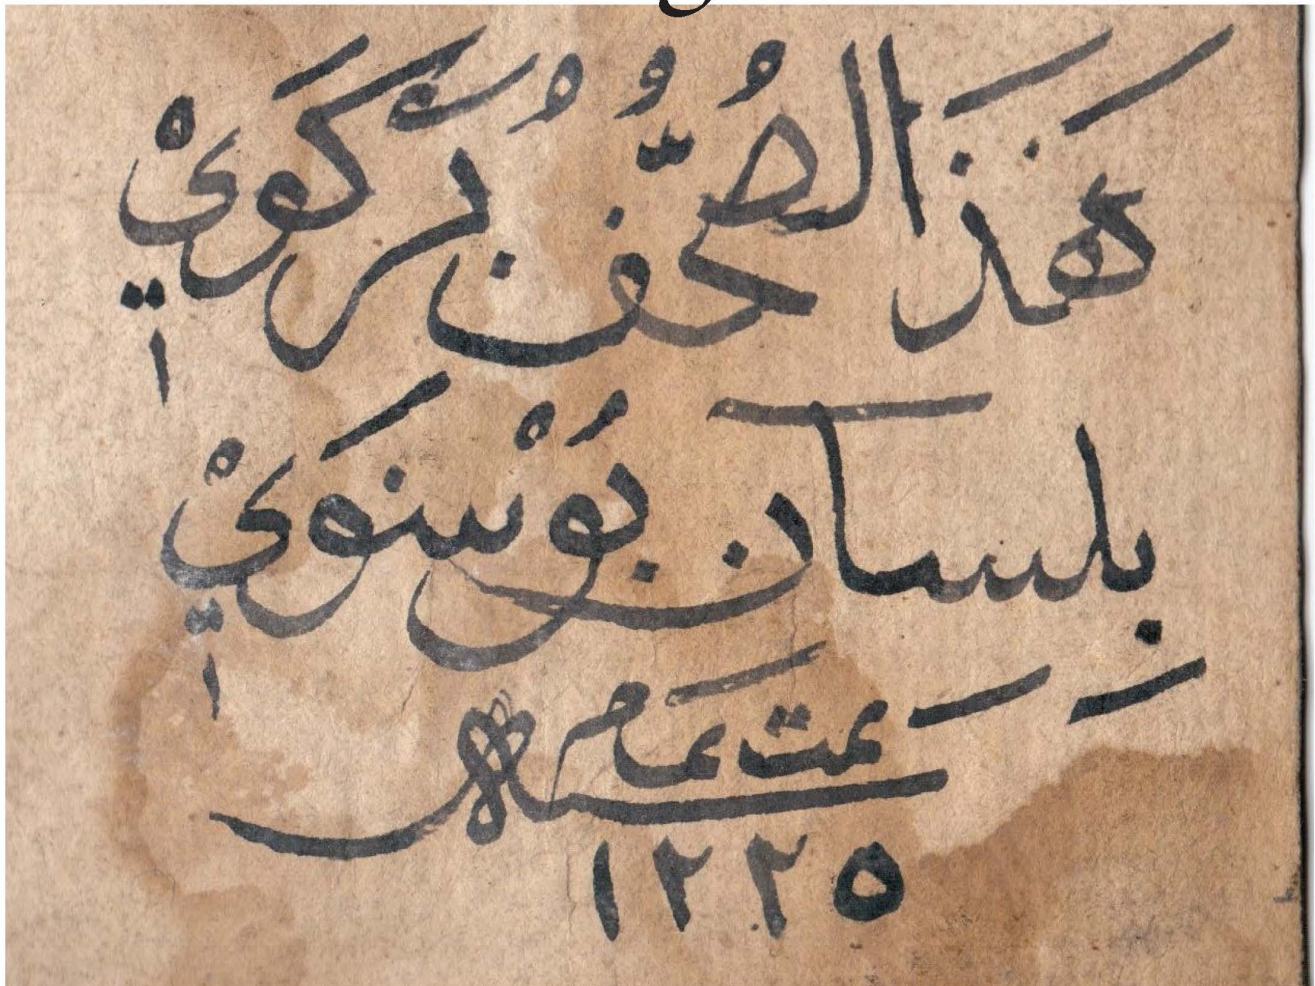 هَذَا الصُّحُفُ بَرْكَوِيْ
بِلِسَان بُوْسْنَوِيْ
تمت تمام
١٢٢٥